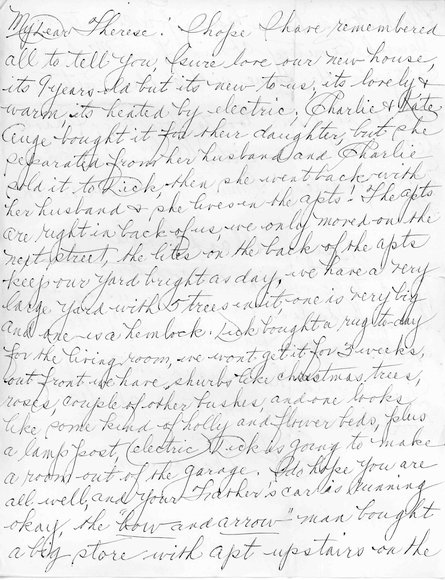 My Dear Therese! I hope I have remembered
all to tell you I sure love our new house,
its 9 years old but its new to us, its lovely &
warm, its heated by electric, Charlie & Kate
Auge bought it for their daughter, but she
separated from her husband and Charlie
sold it to Dick, then she went back with
her husband & she lives in the apts! The apts
are right in back of us, we only moved on the
next street, the lites on the back of the apts
keep our yard bright as day, we have a very
large yard with 5 trees in it, one is very big
and one is a hemlock. Dick bought a rug to-day
for the living room, we wont get it for 3 weeks,
out front we have shurbs like christmas trees,
roses, couple of other bushes, and one looks
like some kind of holly and flower beds, plus
a lamp post, (electric) Dick is going to make
a room out of the garage. I do hope you are
all well, and your Father's car is running
okay, the "bow and arrow" man bought
a big store with apt upstairs on the